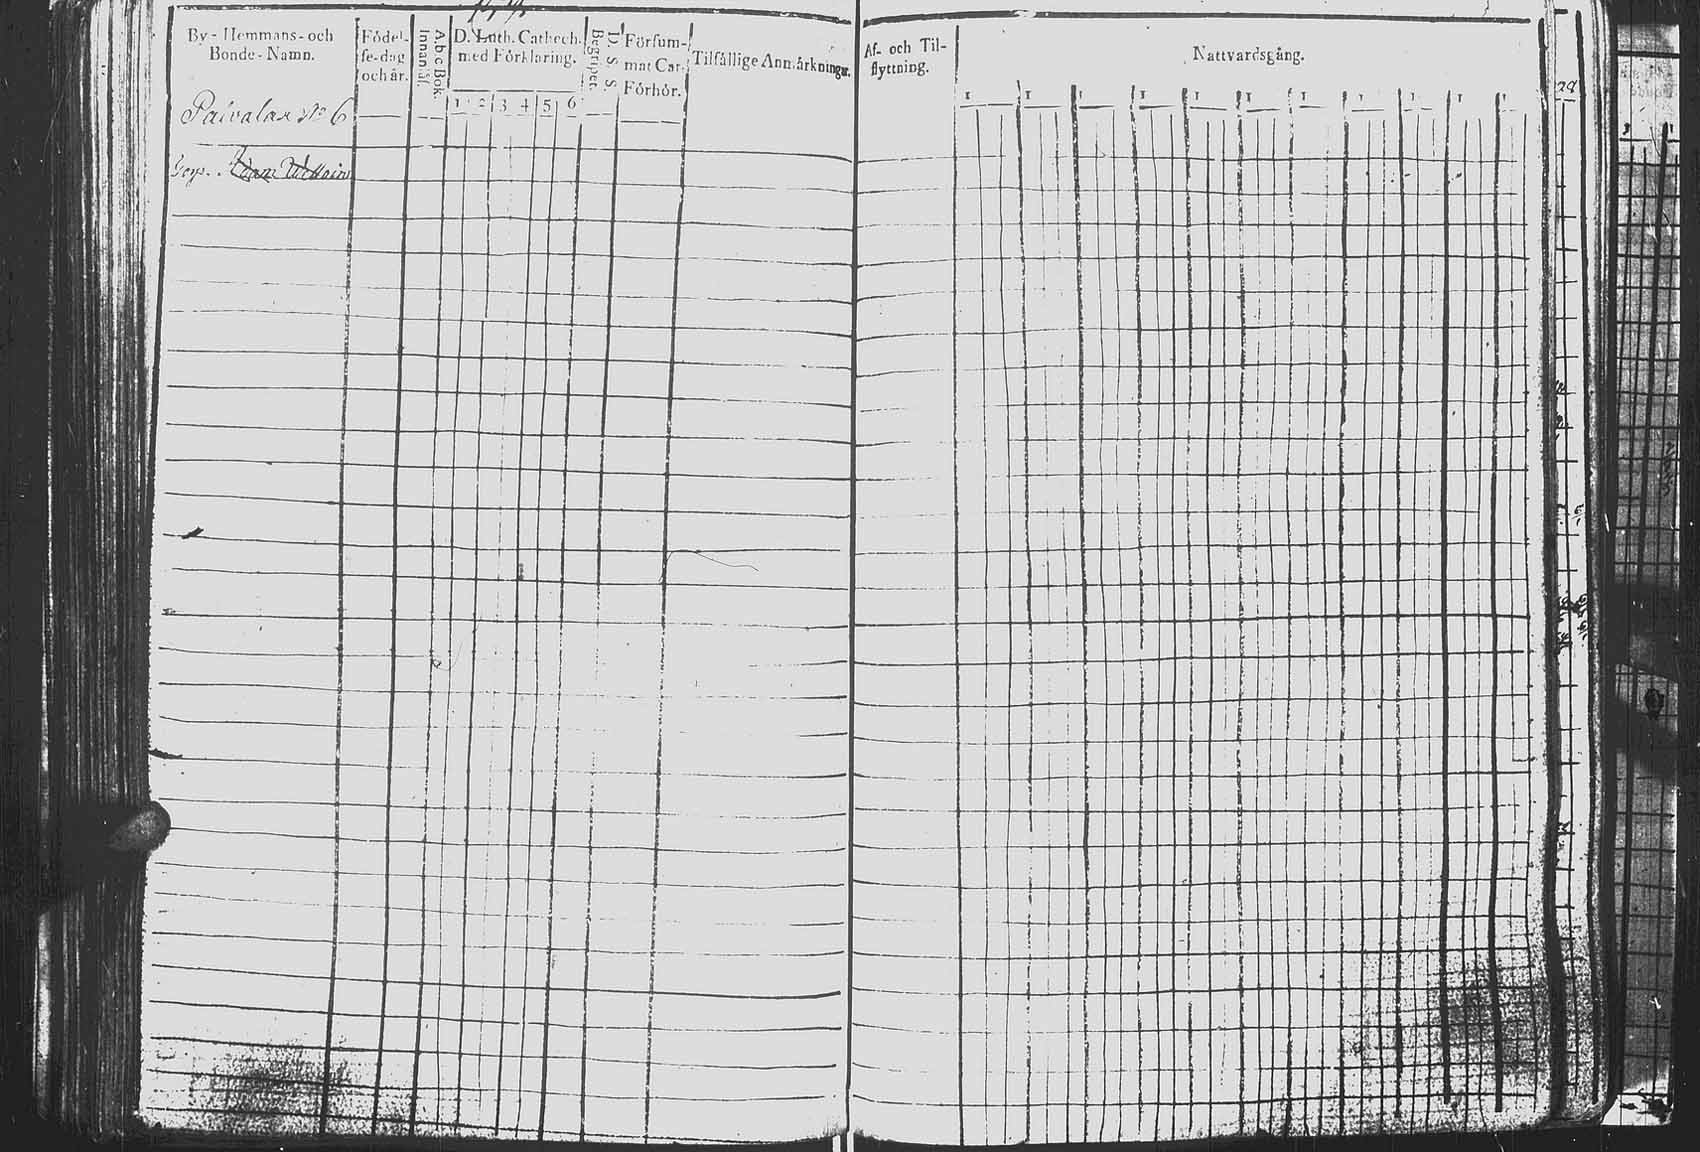 By - Hemmans - och
Bonde - Namn.
Födel-
se-dag
och år.
A b c Bok.
Innantil.
D. Luth. Cathech.
med Förklaring.
1 2 3 4 5 6
D. S. S.
Begripet.
Försum-
mat Cat.
Förhör.
Tilfällige Anmärkningar.
Af- och Til-
flyttning.
Nattvardsgång.
Päivalax No 6
Adam